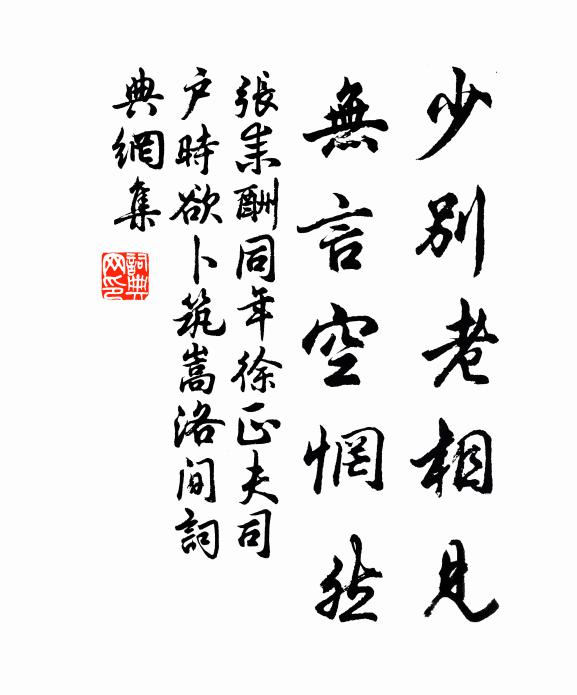 少别老相見
無言空惘然
張耒酬同年徐正夫司
户時欲卜筑嵩洛间詞
典網集
詞典网印